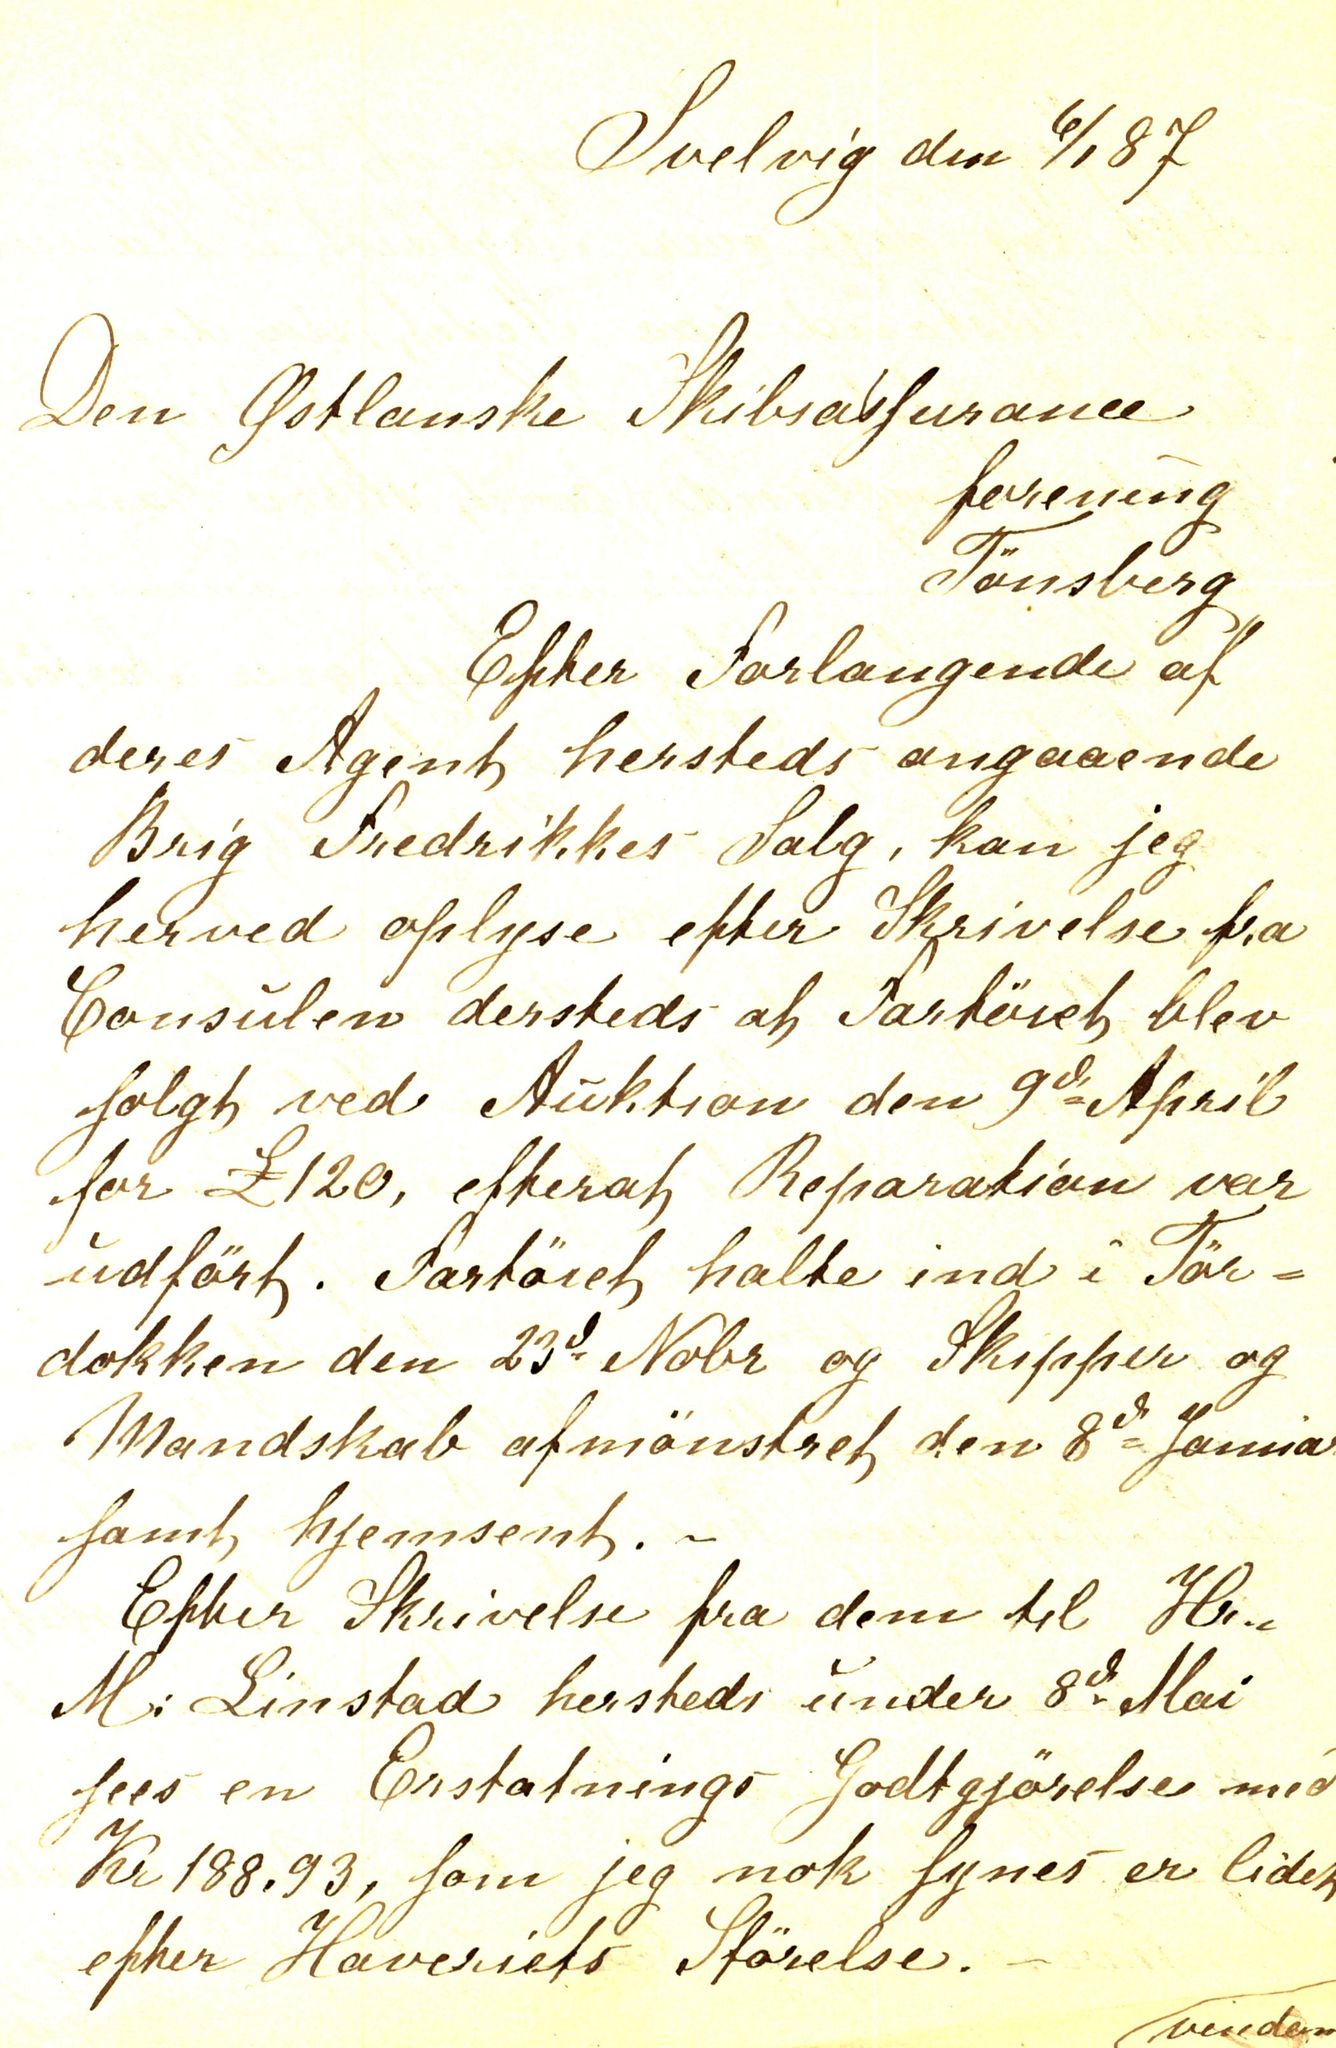 Svelvig den 6/1 87
Den Østlanske Skibsassurance
forening
Tönsberg
Efter Forlangende af
deres Agent hersteds angaaende
Brig Fredrikkes Salg, kan jeg
herved oplyse efter Skrivelse fra
Consulen dersteds at Fartöiet blev
solgt ved Auktion den 9de April
for £120, efterat Reparation var
udfört. Fartöiet halte ind i Tör=
dokken den 23de Nobr og Skipper og
Mandskab afmönstret den 8de Januar
samt hjemsent. -
Efter Skrivelse fra dem til Hr.
M: Linstad hersteds under 8de Mai
sees en Erstatnings Godtgjörelse med
Kr 188.93, som jeg nok synes er lidet
efter Haveriets Störelse. -
venden